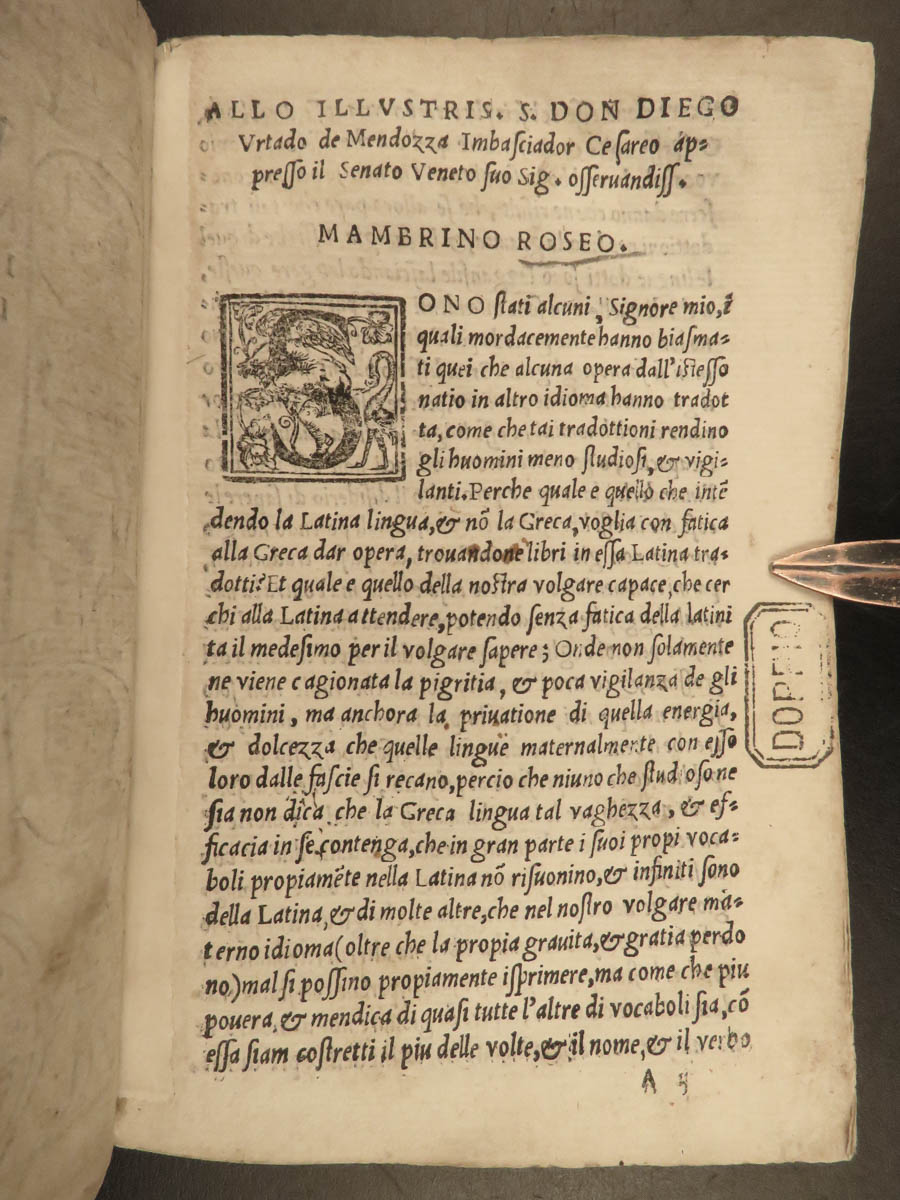 ALLO ILLVSTRIS. S. DON DIEGO
Vrtado de Mendozza Imbaſciador Ceſareo ap=
preſſo il Senato Veneto ſuo Sig. oſſeruandiſſ.
MAMBRINO ROSEO.
SONO ſtati alcuni, Signore mio, i
quali mordacemente hanno biaſma=
ti quei che alcuna opera dall'iſteſſo
natio in altro idioma hanno tradot
ta, come che tai tradottioni rendino
gli huomini meno ſtudioſi, & vigi=
lanti. Perche quale e quello che intẽ
dendo la Latina lingua, & nõ la Greca, voglia con fatica
alla Greca dar opera, trouandone libri in eſſa Latina tra=
dotti? Et quale e quello della noſtra volgare capace, che cer
chi alla Latina attendere, potendo ſenza fatica della latini
ta il medeſimo per il volgare ſapere; Onde non ſolamente
ne viene cagionata la pigritia, & poca vigilanza de gli
huomini, ma anchora la priuatione di quella energia,
& dolcezza che quelle lingue maternalmente con eſſo
loro dalle faſcie ſi recano, percio che niuno che ſtudioſo ne
ſia non dica che la Greca lingua tal vaghezza, & ef=
ficacia in ſe contenga, che in gran parte i ſuoi propi voca=
boli propiamẽte nella Latina nõ riſuonino, & infiniti ſono
della Latina, & di molte altre, che nel noſtro volgare ma=
terno idioma (oltre che la propia grauita, & gratia perdo
no) mal ſi poſſino propiamente iſprimere, ma come che piu
pouera, & mendica di quaſi tutte l'altre di vocaboli ſia, cõ
eſſa ſiam coſtretti il piu delle volte, & il nome, & il verbo
A
DOPPIO